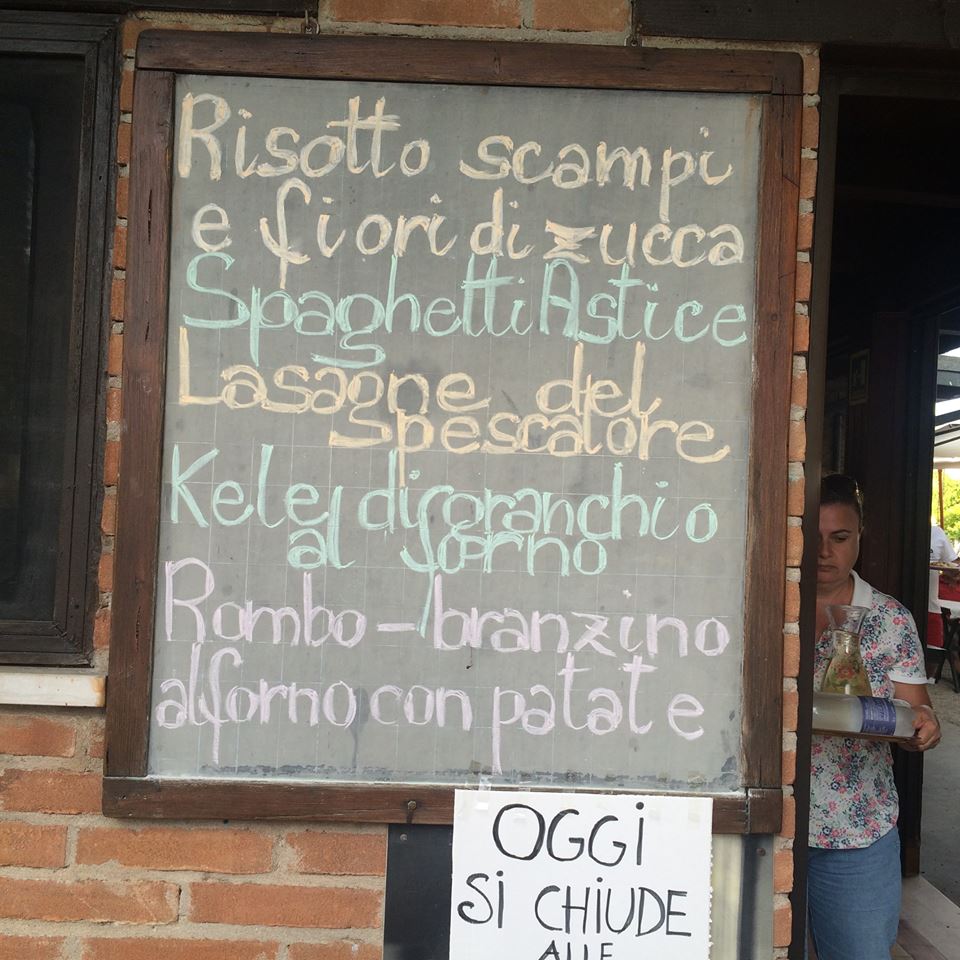 Risotto scampi
e fiori di zucca
Spaghetti Astice
Lasagne del
pescatore
Kele di granchio
al forno
Rombo - branzino
al forno con patate
OGGi
Si CHiUDE
ALLE